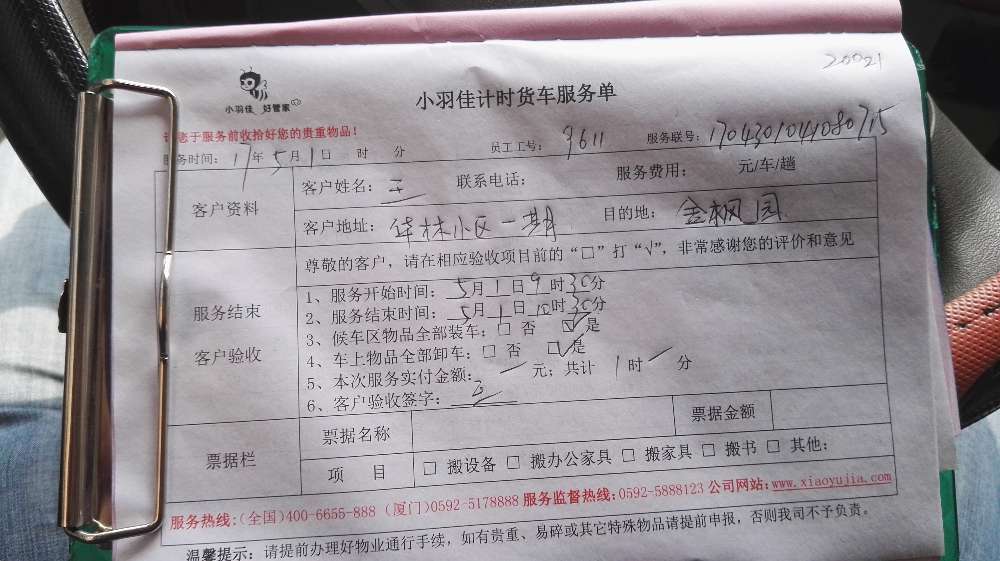 20021
小羽佳 好管家
小羽佳计时货车服务单
请您于服务前收拾好您的贵重物品！
服务时间： 17年5月1日 时 分 员工工号： 9611 服务联号： 1704301041080715
客户资料
客户姓名： 王 联系电话： 服务费用： 元/车/趟
客户地址： 华林小区一期 目的地： 金枫园
服务结束
客户验收
尊敬的客户，请在相应验收项目前的“□”打“√”，非常感谢您的评价和意见
1、服务开始时间： 5月1日9时30分
2、服务结束时间： 5月1日10时30分
3、候车区物品全部装车：□ 否 ☑是
4、车上物品全部卸车：□ 否 ☑是
5、本次服务实付金额： 一 元；共计 1时 一 分
6、客户验收签字： 王
票据栏
票据名称 票据金额
项 目 □ 搬设备 □ 搬办公家具 □ 搬家具 □ 搬书 □ 其他：
服务热线：(全国)400-6655-888 (厦门)0592-5178888 服务监督热线：0592-5888123 公司网站：www.xiaoyujia.com
温馨提示：请提前办理好物业通行手续，如有贵重、易碎或其它特殊物品请提前申报，否则我司不予负责。